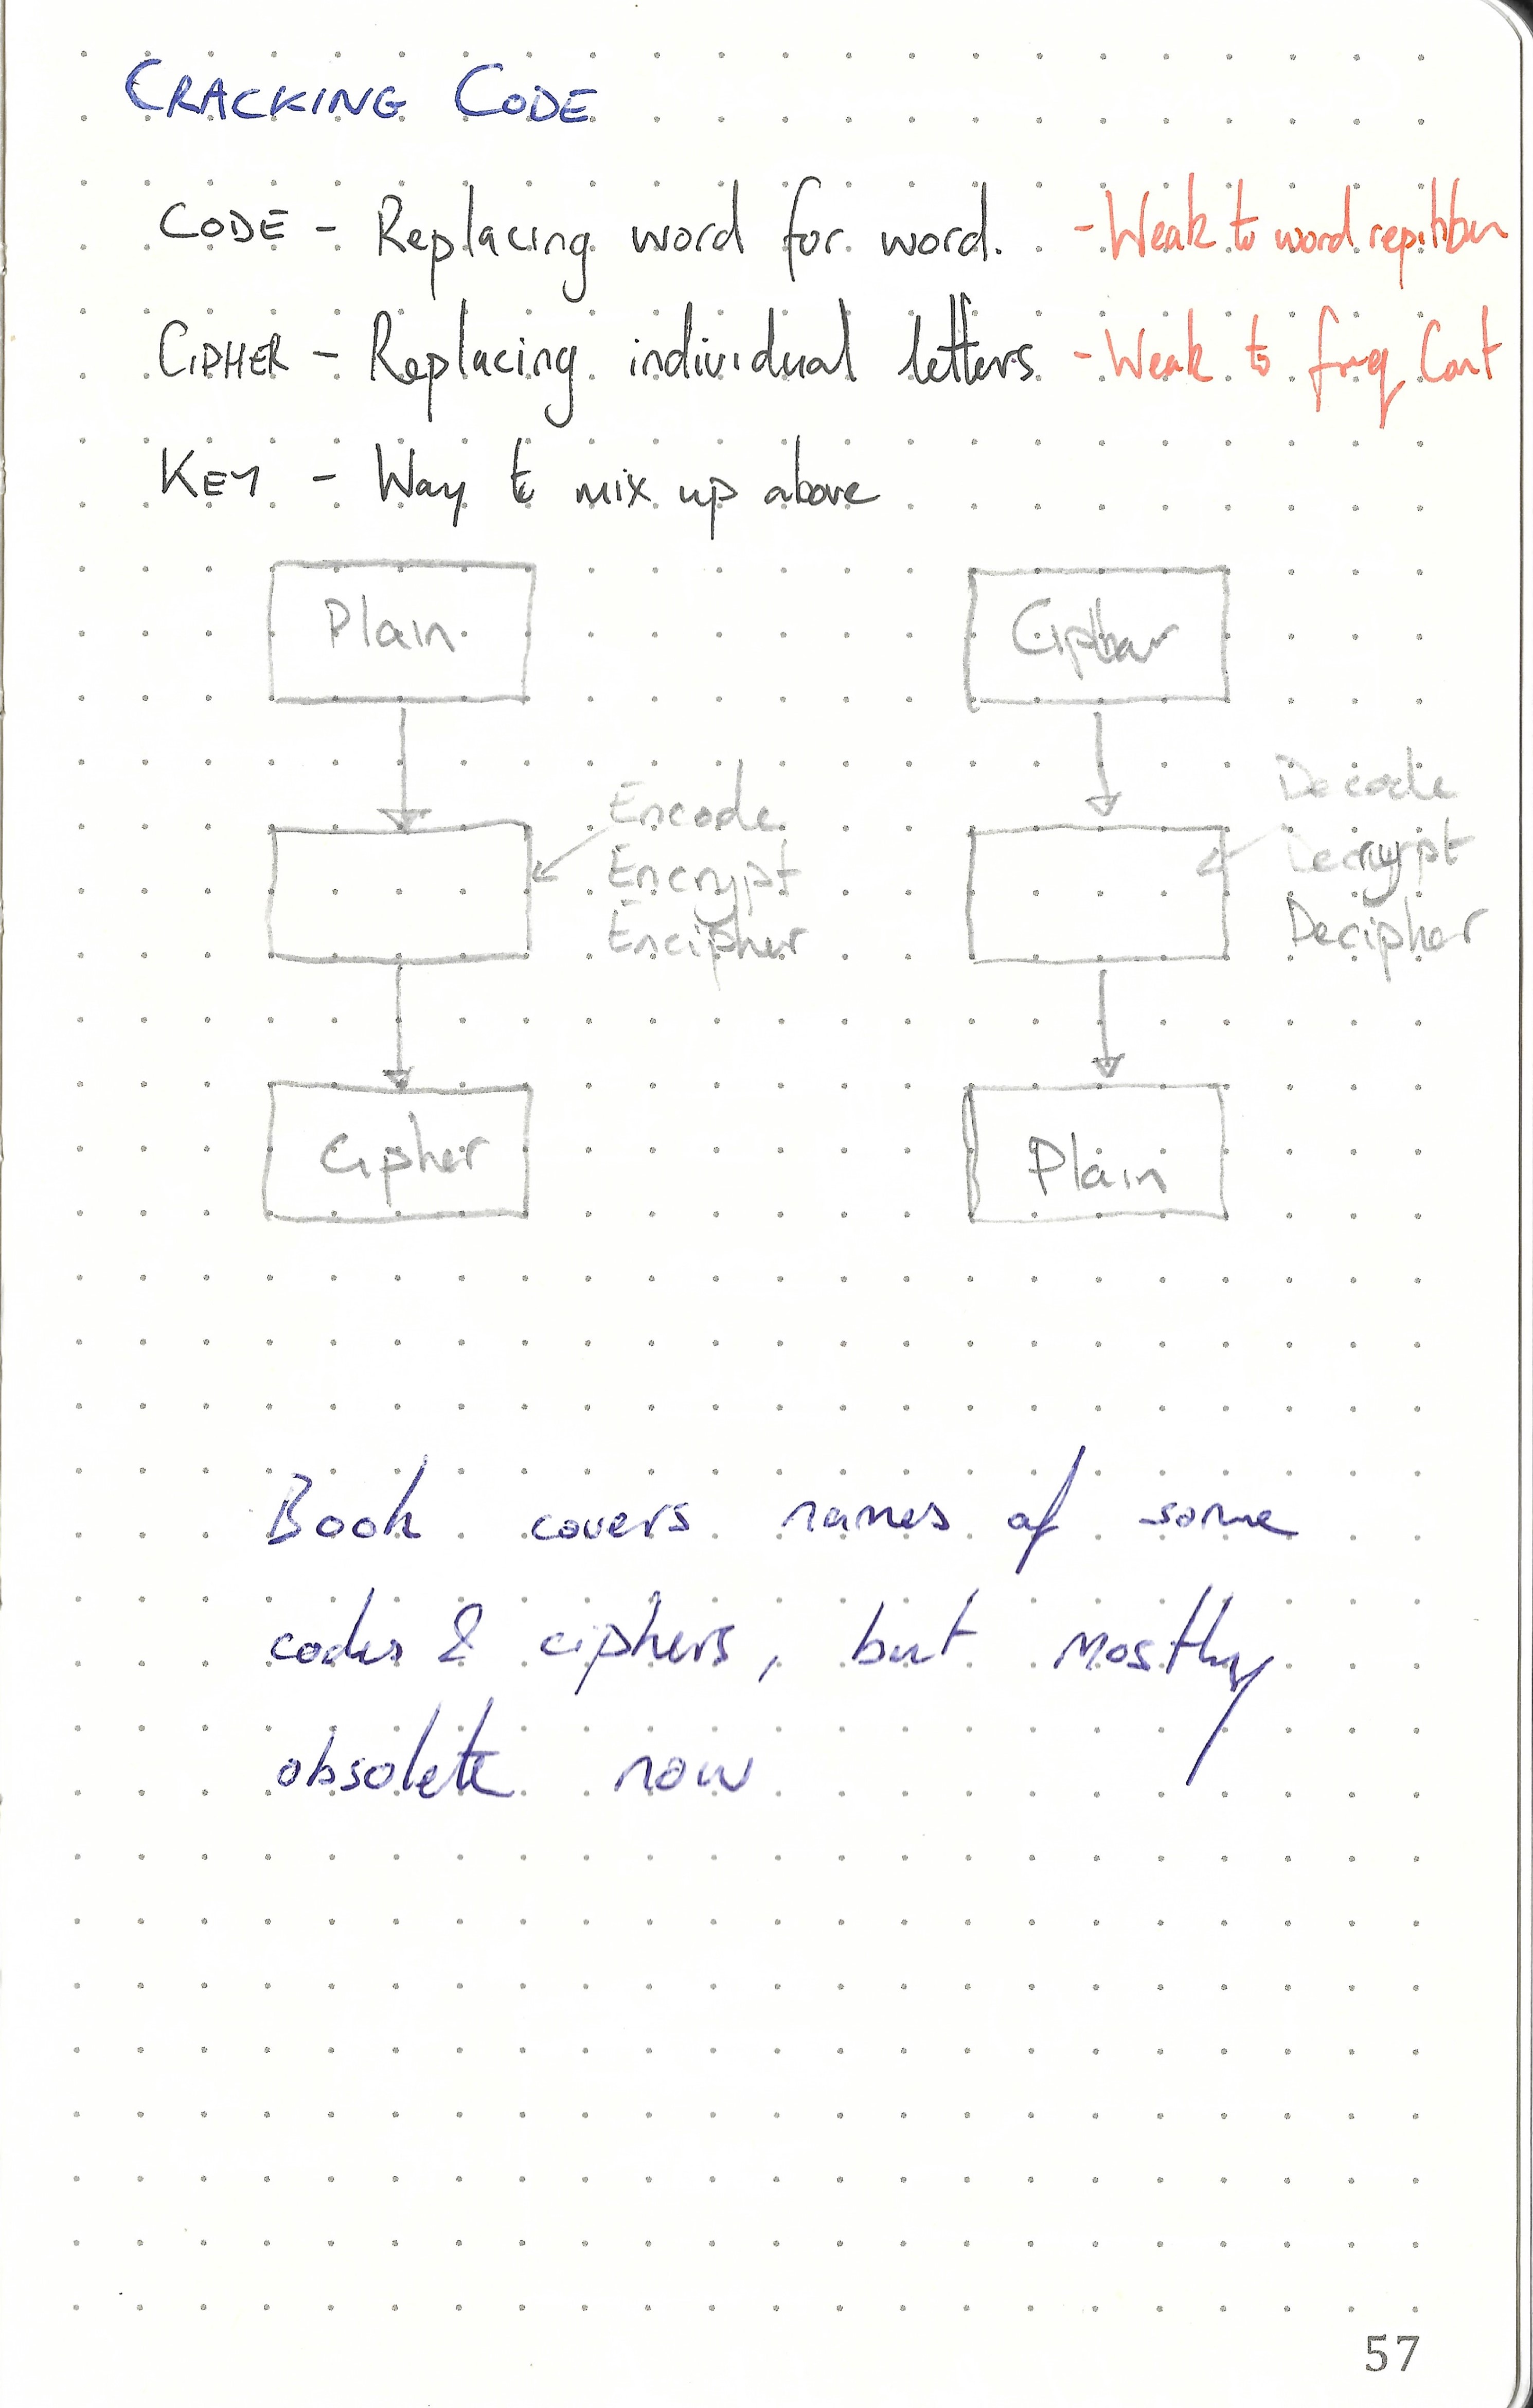 CRACKING CODE
CODE - Replacing word for word. - Weak to word repitition
CIPHER - Replacing individual letters - Weak to freq. Cont
KEY - Way to mix up above
Plain
Cipher
Encode
Encrypt
Encipher
Decode
Decrypt
Decipher
Cipher
Plain
Book covers names of some
codes & ciphers, but mostly
obsolete now
57